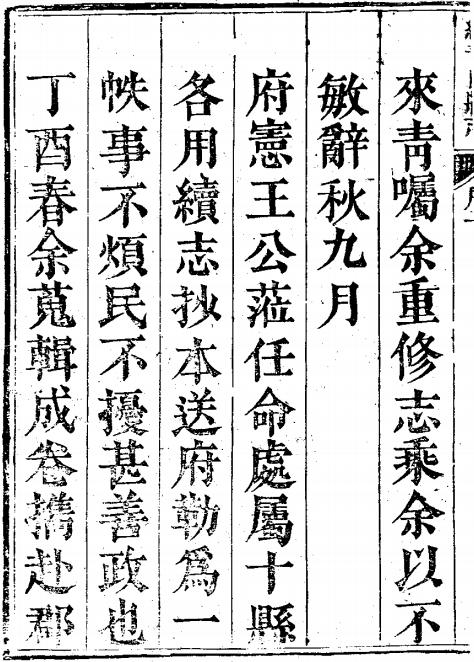 來青囑余重修志乘余以不
敏辭秋九月
府憲王公蒞任命處屬十縣
各用續志抄本送府勒為一
帙事不煩民不擾甚善政也
丁酉春余蒐輯成卷攜赴郡